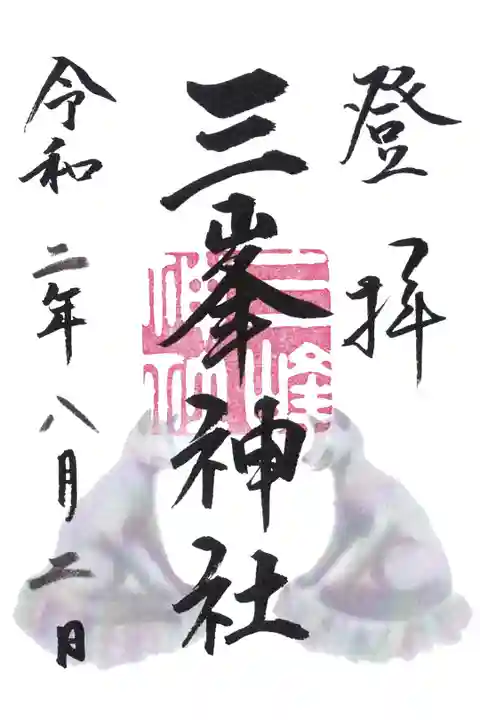 登拝
三峯神社
令和二年八月二日